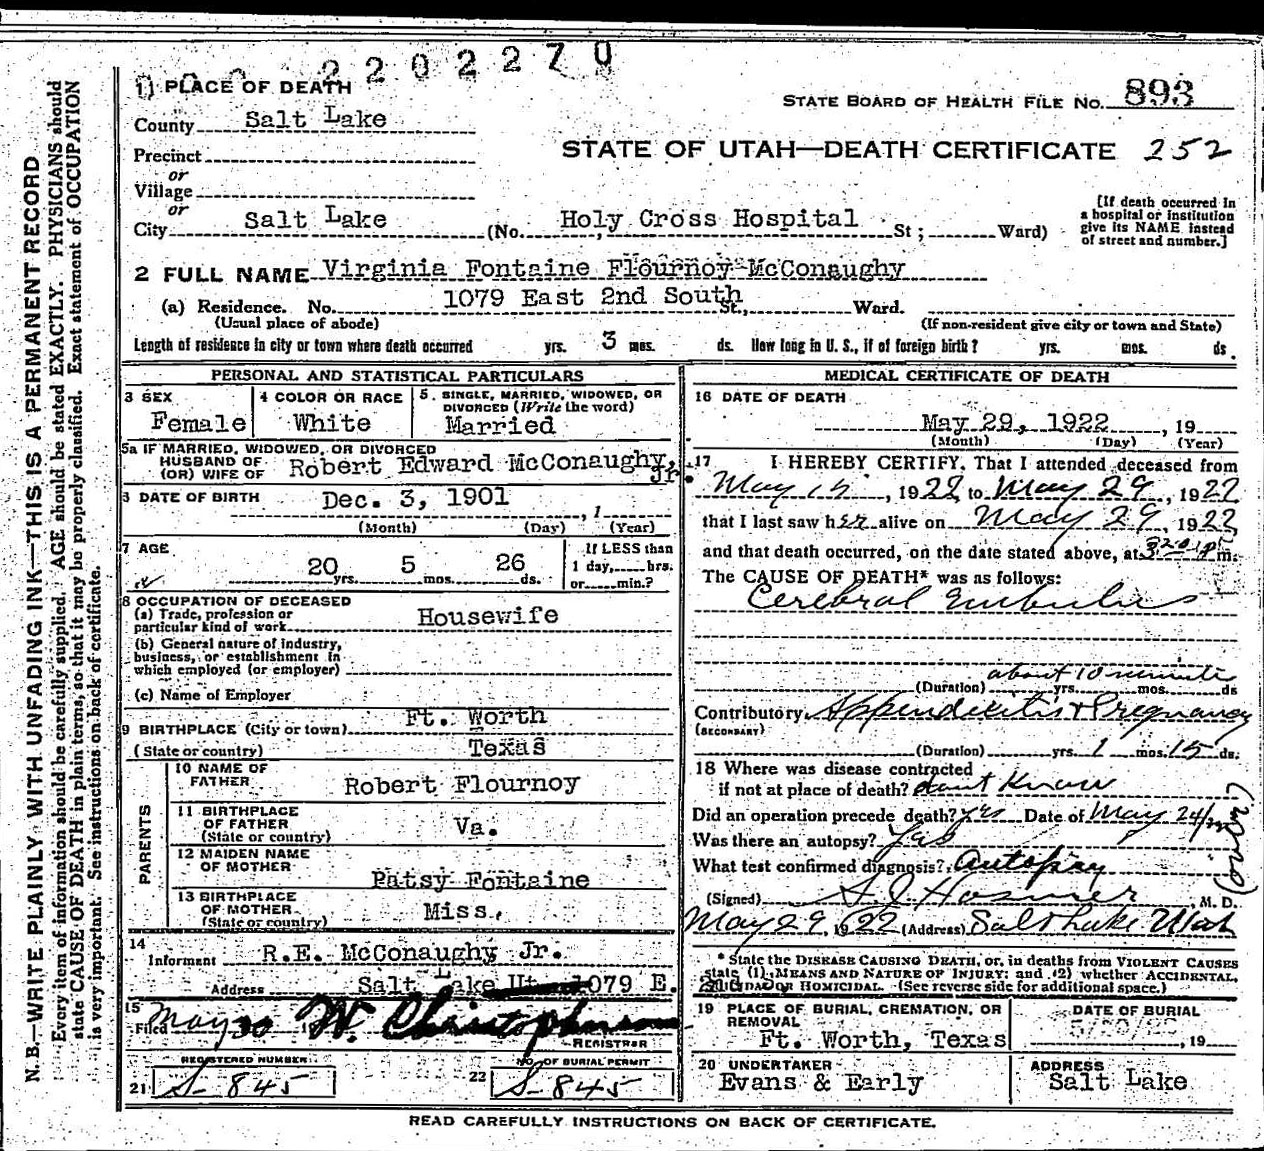 2202270
1) PLACE OF DEATH
STATE BOARD OF HEALTH FILE NO. 893
County Salt Lake
STATE OF UTAH—DEATH CERTIFICATE 252
Precinct
or
Village
or
City Salt Lake (No. Holy Cross Hospital St ; Ward)
[If death occurred in
a hospital or institution
give its NAME instead
of street and number.]
2 FULL NAME Virginia Fontaine Flournoy McConaughy
(a) Residence. No. 1079 East 2nd South St., Ward.
(Usual place of abode) (If non-resident give city or town and State)
Length of residence in city or town where death occurred yrs. 3 mos. ds. How long in U. S., if of foreign birth? yrs. mos. ds.
PERSONAL AND STATISTICAL PARTICULARS
3 SEX
Female
4 COLOR OR RACE
White
5. SINGLE, MARRIED, WIDOWED, OR
DIVORCED (Write the word)
Married
5a IF MARRIED, WIDOWED, OR DIVORCED
HUSBAND OF
(OR) WIFE OF Robert Edward McConaughy, Jr.
6 DATE OF BIRTH Dec. 3, 1901 , 1
(Month) (Day) (Year)
7 AGE
20 yrs. 5 mos. 26 ds.
If LESS than
1 day, hrs.
or min.?
8 OCCUPATION OF DECEASED
(a) Trade, profession or
particular kind of work Housewife
(b) General nature of industry,
business, or establishment in
which employed (or employer)
(c) Name of Employer
9 BIRTHPLACE (City or town) Ft. Worth
(State or country) Texas
PARENTS
10 NAME OF
FATHER Robert Flournoy
11 BIRTHPLACE
OF FATHER
(State or country) Va.
12 MAIDEN NAME
OF MOTHER Patsy Fontaine
13 BIRTHPLACE
OF MOTHER
(State or country) Miss.
14
Informent R.E. McConaughy Jr.
Address Salt Lake Utah 1079 E.
15
Filed May 30 19 W. Christopherson
REGISTRAR
REGISTERED NUMBER
21 S-845
NO. OF BURIAL PERMIT
22 S-845
MEDICAL CERTIFICATE OF DEATH
16 DATE OF DEATH
May 29, 1922 , 19
(Month) (Day) (Year)
17 I HEREBY CERTIFY, That I attended deceased from
May 15 , 1922 to May 29 , 1922
that I last saw her alive on May 29 , 1922
and that death occurred, on the date stated above, at 3 20 P m.
The CAUSE OF DEATH* was as follows:
Cerebral Embulus
about 10 minutes
(Duration) yrs. mos. ds
Contributory Appendicitis + Pregnancy
(SECONDARY)
(Duration) yrs. 1 mos. 15 ds.
18 Where was disease contracted
if not at place of death? dont Know
Did an operation precede death? yes Date of May 24/22
Was there an autopsy? Yes
What test confirmed diagnosis? Autopsy
(Signed) , M. D.
May 29 1922 (Address) Salt Lake Utah
* State the DISEASE CAUSING DEATH, or, in deaths from VIOLENT CAUSES
state (1) MEANS AND NATURE OF INJURY: and (2) whether ACCIDENTAL,
SUICIDAL, or HOMICIDAL. (See reverse side for additional space.)
19 PLACE OF BURIAL, CREMATION, OR
REMOVAL
Ft. Worth, Texas
DATE OF BURIAL
, 19
20 UNDERTAKER
Evans & Early
ADDRESS
Salt Lake
READ CAREFULLY INSTRUCTIONS ON BACK OF CERTIFICATE.
N. B.—WRITE PLAINLY WITH UNFADING INK—THIS IS A PERMANENT RECORD
Every item of information should be carefully supplied. AGE should be stated EXACTLY. PHYSICIANS should
state CAUSE OF DEATH in plain terms, so that it may be properly classified. Exact statement of OCCUPATION
is very important. See instructions on back of certificate.